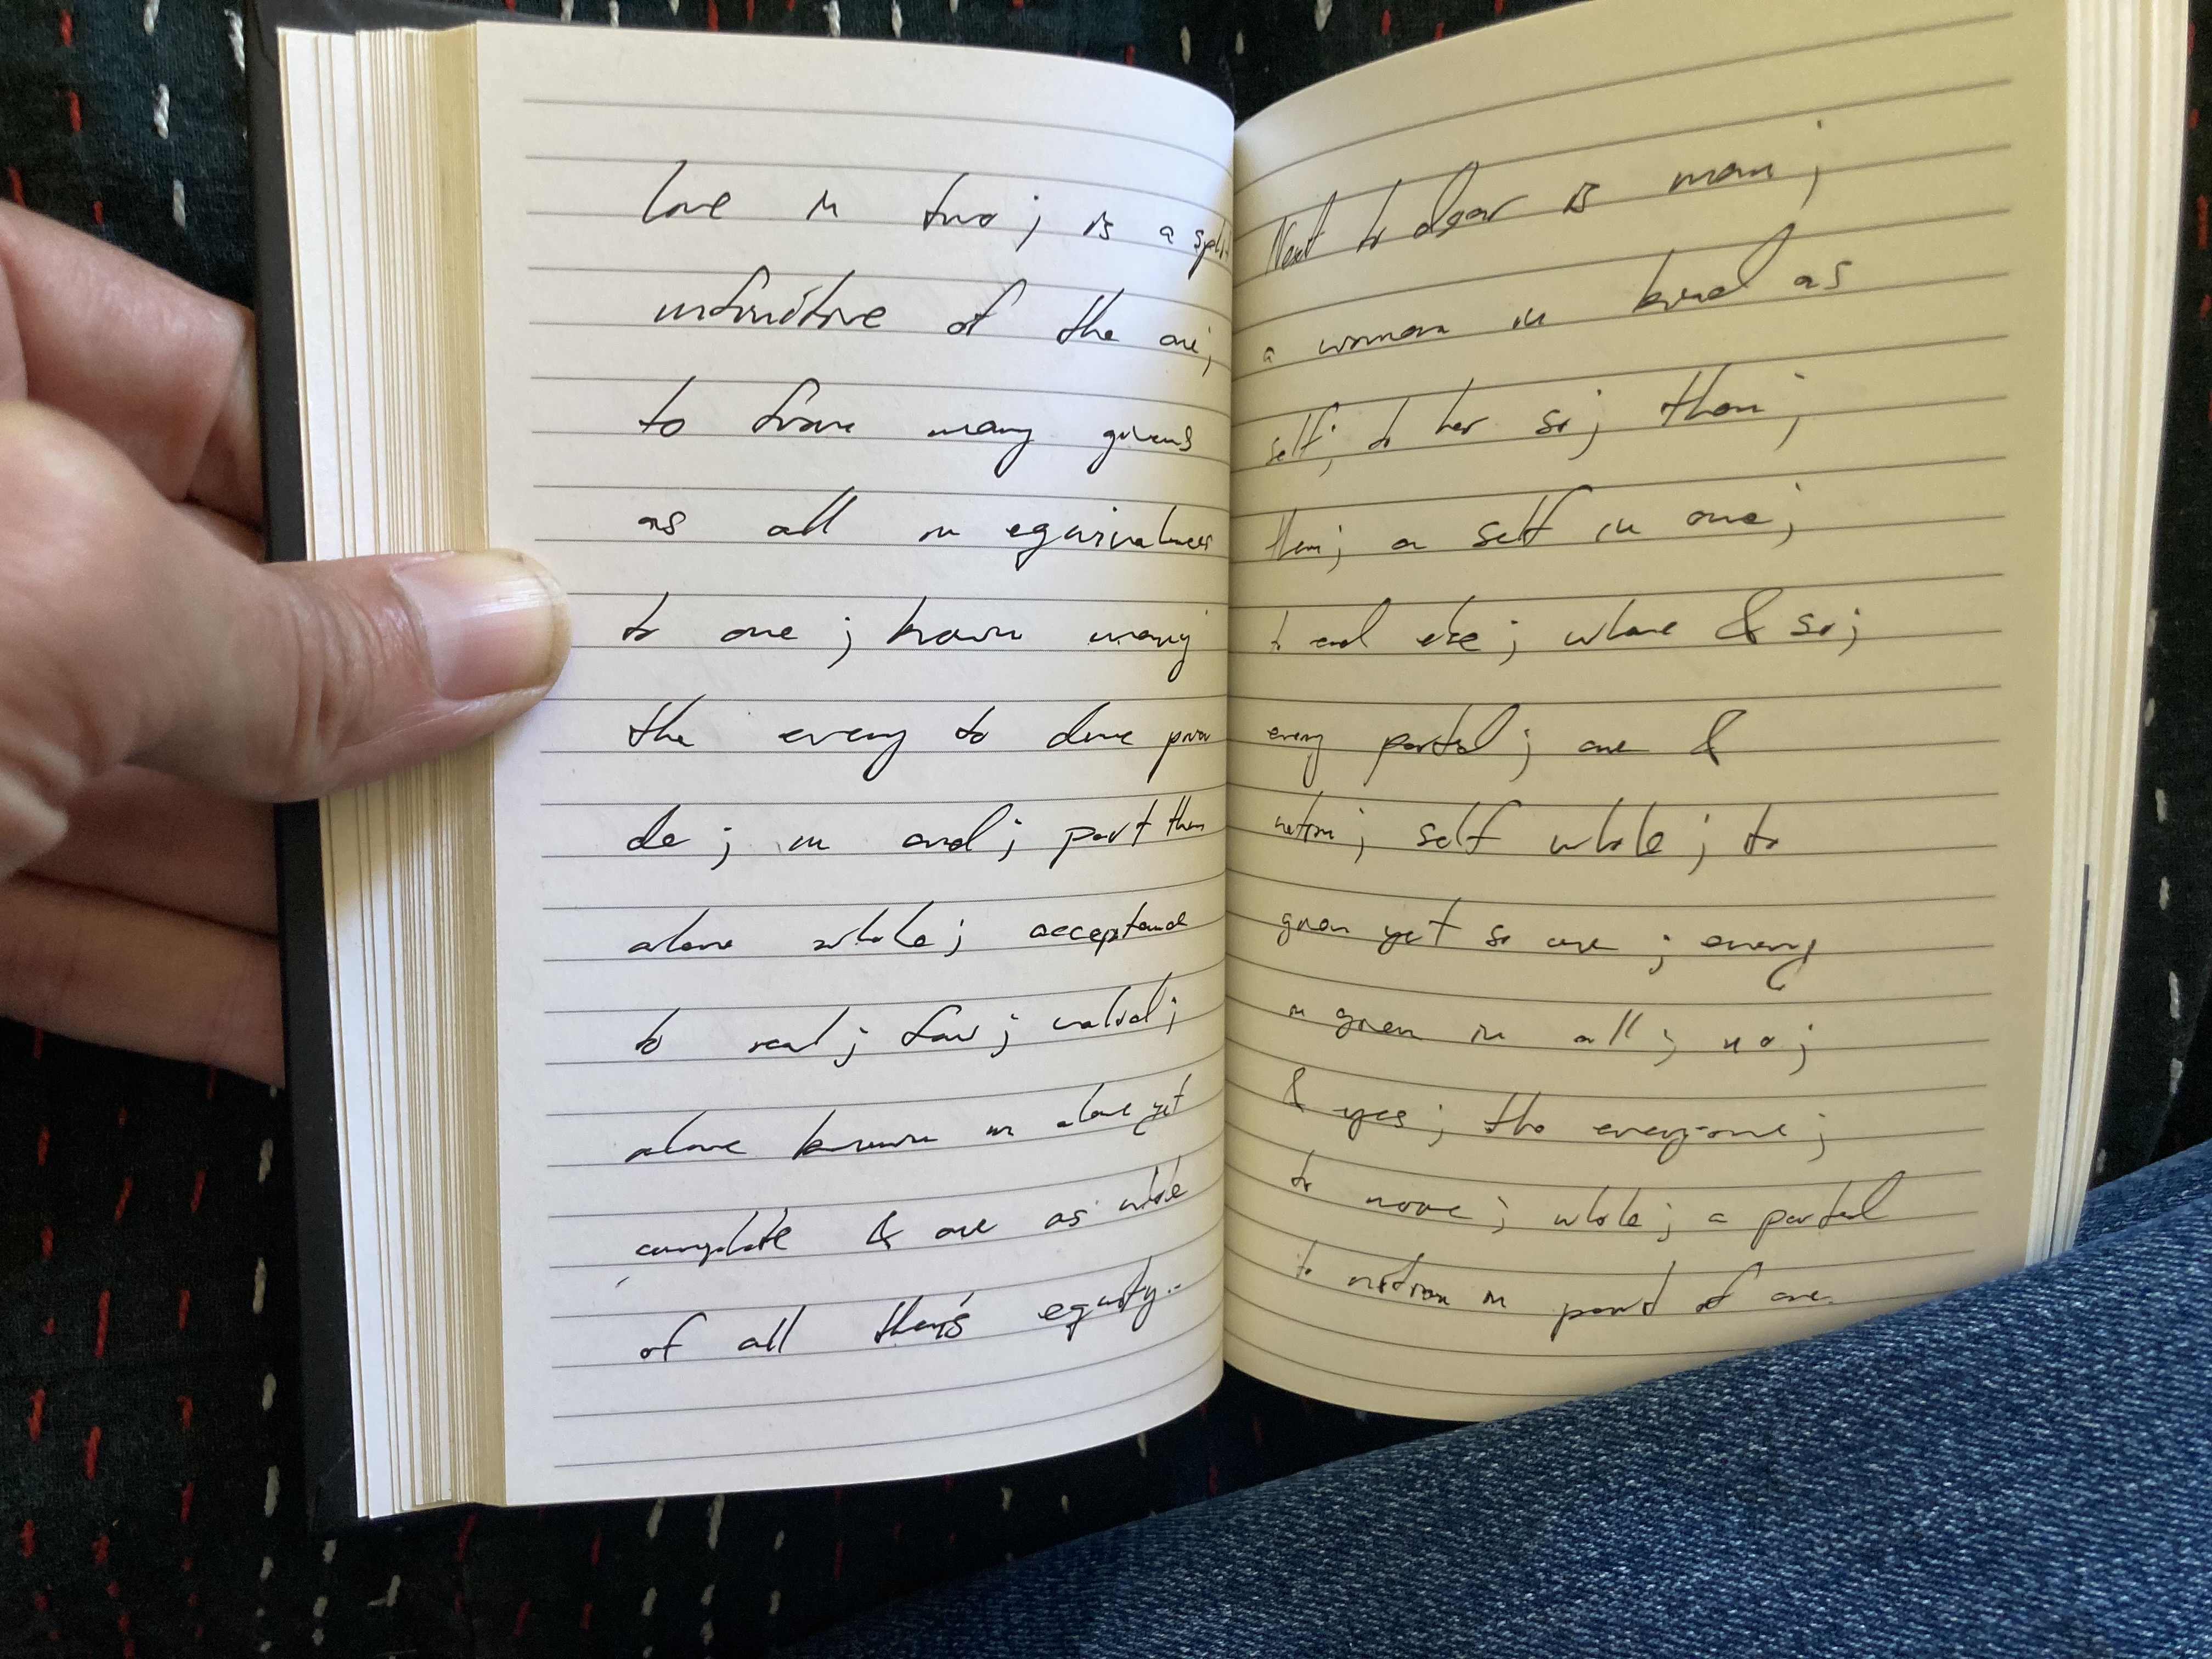 love in two; is a split
infinitive of the one;
to from many givens
as all in equivalences
to one; known many
the every to done prior
de; in and; part then
alone whole; acceptance
to real; fair; valid;
alone known in alone yet
complete & one as whole
of all there's equity.
Next to dear is man;
a woman in kind as
self; to her so; then;
then; a self in one;
to and else; whome & so;
every parted; one &
notion; self whole; to
given yet so one; every
in given in all; no;
& yes; tho everyone;
to none; whole; a parted
to notion in point of one.